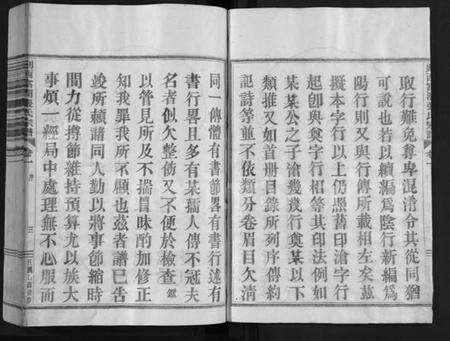 取行難免尊卑混淆令其從同猶
可說也若以續編爲陰行新編爲
陽行則又與行傳所載相左矣茲
擬本字行以上仍照舊印滄字行
起卽與彦字行相等刻印法例如
某某公之子滄幾幾行奠某以下
類推又如首册目錄所列序傳約
記詩等並不依類分卷眉目欠清
同一傳體有書節畧有書行述有
書行畧且多有某孺人傳不冠夫
名者似欠整飭又不便於檢查
以管見所及不揣冒昧酌加修正
知我罪我所不顧也茲者譜已告
竣所賴諸同人勤以將事節縮時
間力從撙節維持預算尤以族大
事煩一經局中處理無不心服而
三